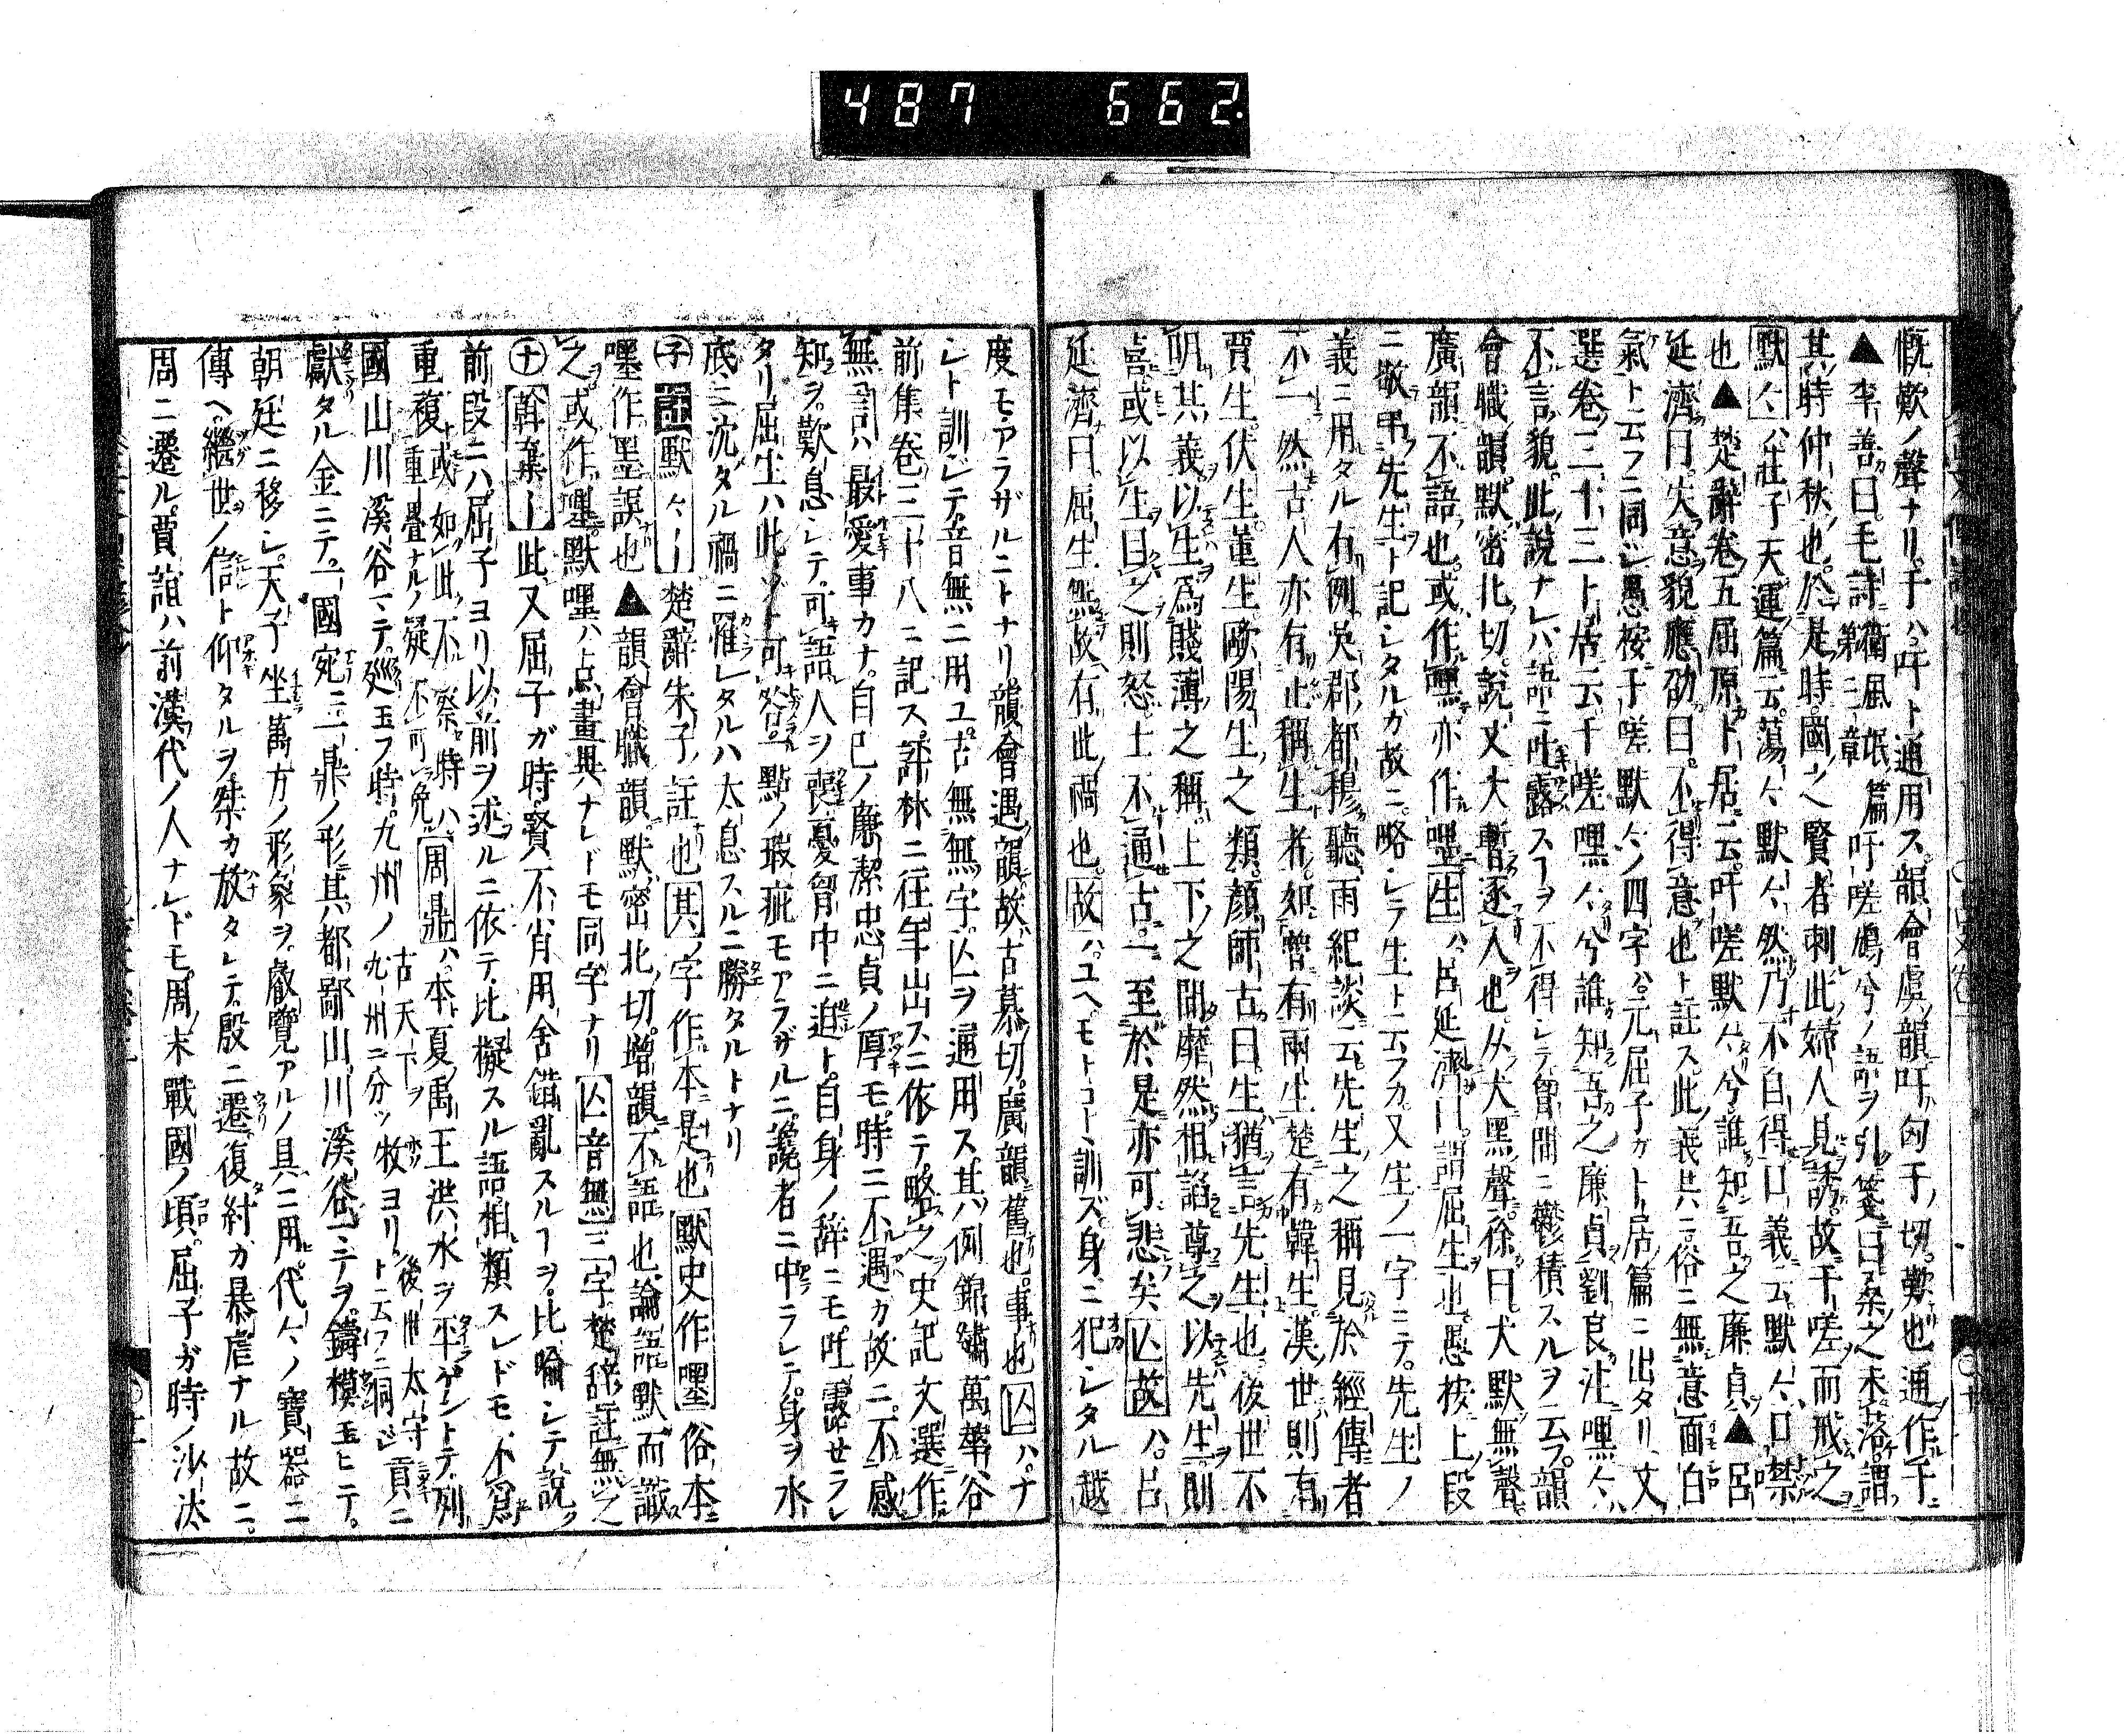 487 662
慨歎ノ聲ナリ于ハ吁ト通用ス韻會虞韻吁匈于切歎也通作于
▲李善曰毛詩衛風氓篇第三章吁嗟鳩兮ノ語ヲ引箋曰桑之未落謂
其時仲秋也於是時國之賢者刺此婦人見誘故于嗟而戒之
默々ハ莊子天運篇云蕩々默々然乃不自得口義云默々口噤
也▲楚辭卷五屈原卜居云吁嗟默々兮誰知吾之廉貞▲呂
延濟曰失意貌應劭曰不得意也ト註ス此義共ニ俗ニ無意面白
氣ト云フニ同ジ愚按于嗟默々ノ四字ハ元屈子ガ卜居篇ニ出タリ文
選卷三十三卜居云于嗟嘿々兮誰知吾之廉貞劉良注嘿々ハ
不言貌此説ナレバ語ニ吐露スヿヲ不得レテ胷間ニ鬱積スルヲ云フ韻
會職韻默密北切説文犬暫逐人也从犬黑聲徐曰犬默無聲
廣韻不語也或作嘿亦作嚜生ハ呂延濟曰謂屈生也愚按上段
ニ敬弔先生ト記シタルカ故ニ略シテ生ト云フカ又生ノ一字ニテ先生ノ
義ニ用タル有例吳郡都穆聽雨紀談云先生之稱見於經傳者
不一然古人亦有止稱生者如魯有兩生楚有韓生漢世則有
賈生伏生董生歐陽生之類顏師古曰生猶言先生也後世不
明其義以生爲賤薄之稱上下之間靡然相諂尊之以先生則
喜或以生目之則怒士不通古一至於是亦可悲矣亾故ハ呂
延濟曰屈生無故有此禍也故ハユヘモトコト訓ズ身ニ犯シタル越
度モアラザルニトナリ韻會遇韻故古慕切廣韻舊也事也亾ハナ
シト訓ジテ音無ニ用ユ古無無字亾ヲ通用ス其例錦繡萬華谷
前集卷三十八ニ記ス評林ニ往年山スニ依テ略之史記文選作
無言ハ最愛事カナ自己ノ廉潔忠貞ノ厚モ時ニ不遇カ故ニ不感
知ヲ歎息シテ可語人ヲ喪憂胷中ニ迫ト自身ノ辭ニモ吐露セラレ
タリ屈生ハ此ソト可咎一點ノ瑕疵モアラザルニ讒者ニ中ラレテ身ヲ水
底ニ沈タル禍ニ罹レタルハ太息スルニ勝タルトナリ
默々｜楚辭朱子註也其ノ字作本是也默史作嚜俗本
嚜作墨誤也▲韻會職韻默密北切增韻不語也論語默而識
之或作嘿默嘿ハ点畫異ナレドモ同字ナリ亾音無三字楚辭註無之
十斡棄｜此又屈子ガ時賢不肖用舍錯亂スルヿヲ比喩シテ説ク
前段ニハ屈子ヨリ以前ヲ述ルニ依テ比擬スル語相類スレドモ不爲
重複或如此不察時ハ重疊ナルノ疑不可免周鼎ハ本夏禹王洪水ヲ平ゲントテ列
國山川溪谷ニテ廵玉フ時九州ノ古天下ヲ九州ニ分ツ牧ヨリ後世太守ト云フニ同ジ貢ニ
獻タル金ニテ一國宛ニ一鼎ノ形其都鄙山川溪谷ニテヲ鑄模玉ヒニテ
朝廷ニ移シ天子坐萬方ノ形象ヲ叡覽アルノ具ニ用代々ノ寶器ニ
傳ヘ繼世ノ信ト仰タルヲ桀カ放タレテ殷ニ遷復紂ガ暴虐ナル故ニ
周ニ遷ル賈誼ハ前漢代ノ人ナレドモ周ノ末戰國ノ頃屈子ガ時ノ沙汰